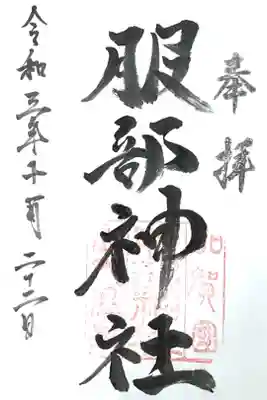 奉拝
服部神社
加賀國
令和三年十一月二十二日